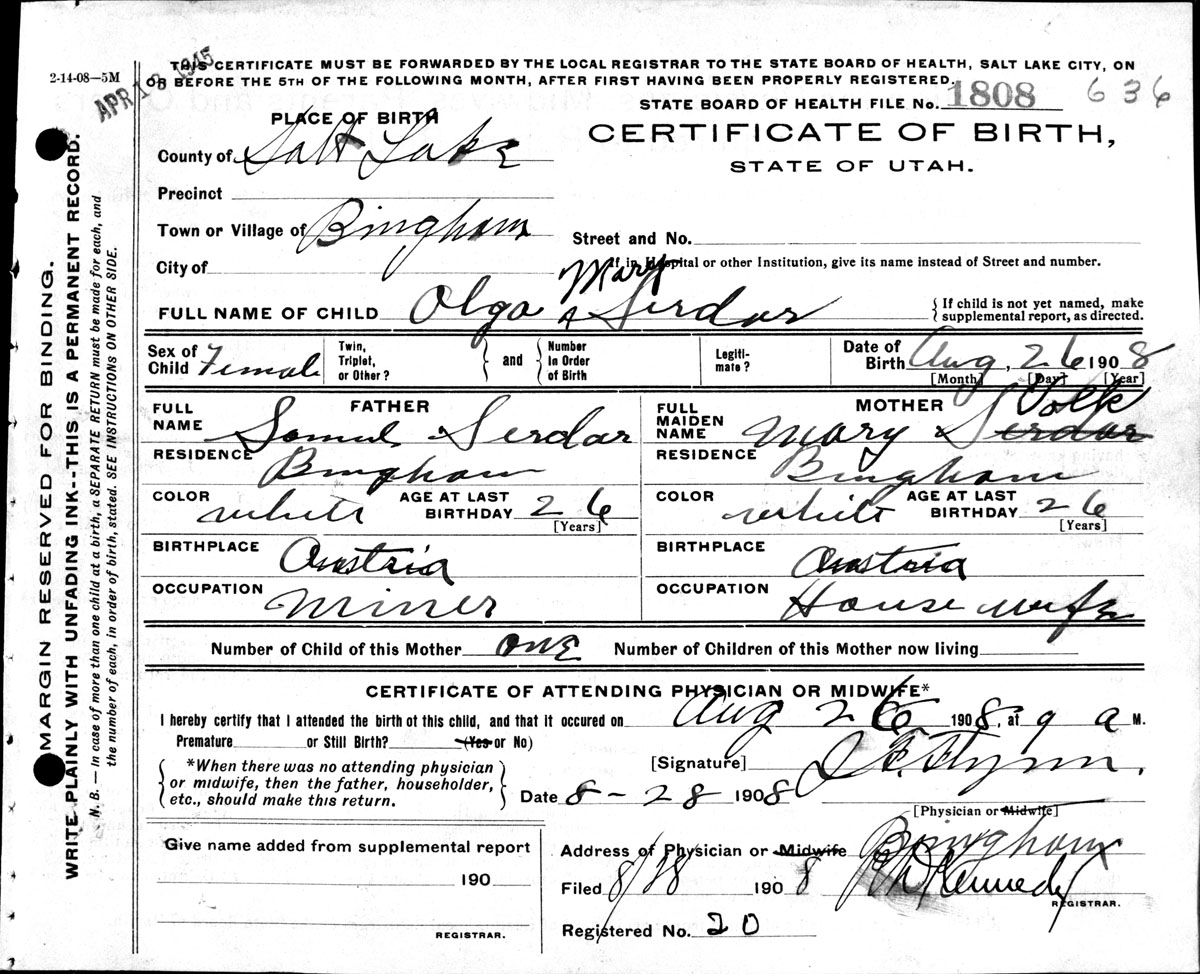 2-14-08—5M
APR 18 1945
THIS CERTIFICATE MUST BE FORWARDED BY THE LOCAL REGISTRAR TO THE STATE BOARD OF HEALTH, SALT LAKE CITY, ON
OR BEFORE THE 5TH OF THE FOLLOWING MONTH, AFTER FIRST HAVING BEEN PROPERLY REGISTERED.
STATE BOARD OF HEALTH FILE No. 1808 636
PLACE OF BIRTH
CERTIFICATE OF BIRTH,
STATE OF UTAH.
County of Salt Lake
Precinct
Town or Village of Bingham
Street and No.
City of
If in Hospital or other Institution, give its name instead of Street and number.
Mary
FULL NAME OF CHILD Olga Serdar
{ If child is not yet named, make
supplemental report, as directed.
Sex of Child Female
Twin, Triplet, or Other?
and
Number In Order of Birth
Legiti-mate?
Date of Birth Aug, 26 1908
[Month] [Day] [Year]
FATHER
FULL NAME Samul Serdar
RESIDENCE Bingham
COLOR White AGE AT LAST BIRTHDAY 26
[Years]
BIRTHPLACE Austria
OCCUPATION Miner
MOTHER
FULL MAIDEN NAME Mary Serdar Volk
RESIDENCE Bingham
COLOR White AGE AT LAST BIRTHDAY 26
[Years]
BIRTHPLACE Austria
OCCUPATION House wife
Number of Child of this Mother one Number of Children of this Mother now living
CERTIFICATE OF ATTENDING PHYSICIAN OR MIDWIFE*
I hereby certify that I attended the birth of this child, and that it occured on Aug 26 1908, at 9 a M.
Premature or Still Birth? (Yes or No)
*When there was no attending physician
or midwife, then the father, householder,
etc., should make this return.
[Signature] F. Flynn.
Date 8-28 1908
[Physician or Midwife]
Give name added from supplemental report
190
REGISTRAR.
Address of Physician or Midwife Bingham
Filed 8/28 1908 Kennedy
REGISTRAR.
Registered No. 20
MARGIN RESERVED FOR BINDING.
WRITE PLAINLY WITH UNFADING INK--THIS IS A PERMANENT RECORD.
N. B. — In case of more than one child at a birth, a SEPARATE RETURN must be made for each, and
the number of each, in order of birth, stated. SEE INSTRUCTIONS ON OTHER SIDE.